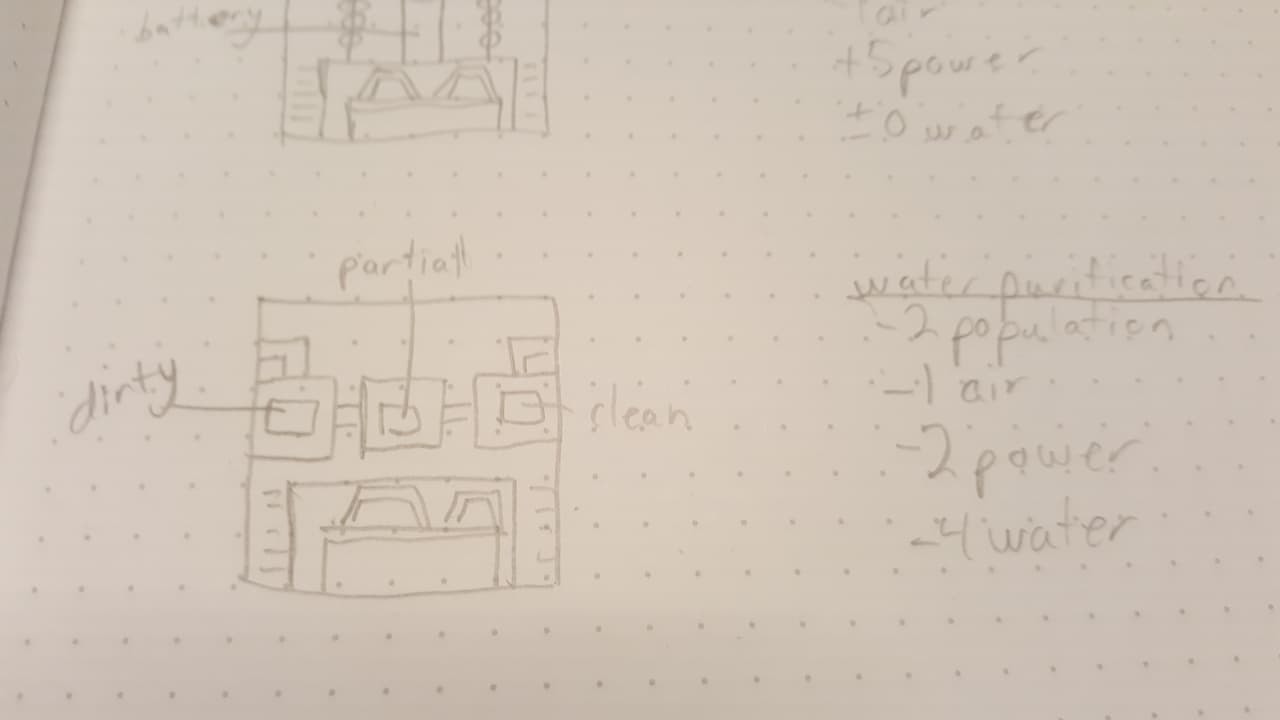 battery
air
+5 power
±0 water
partiall
dirty
clean
water purification
-2 population
-1 air
-2 power
-4 water